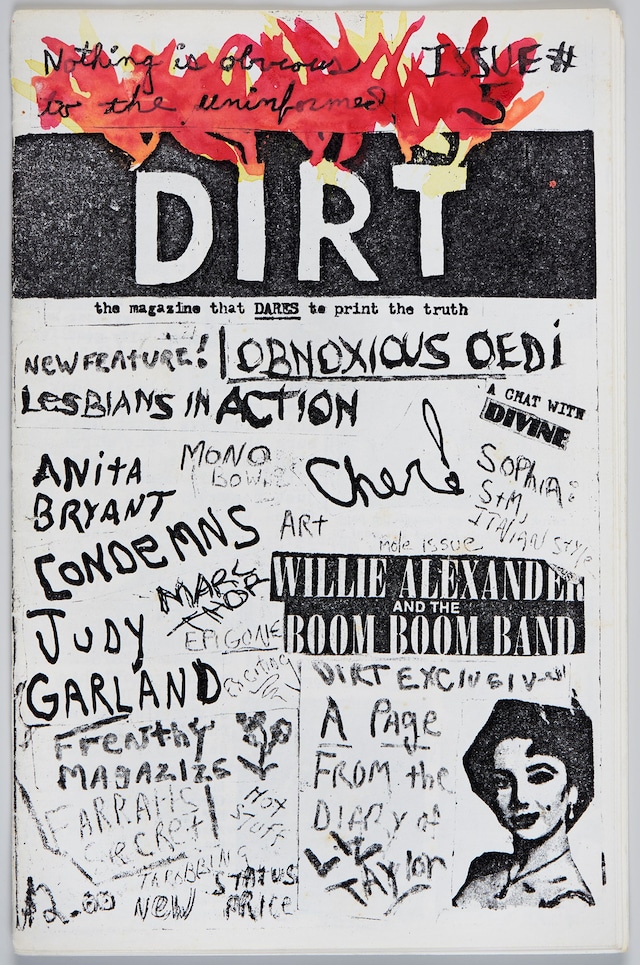 Nothing is obvious
to the uninformed
ISSUE #
5
DIRT
the magazine that DARES to print the truth
NEW FEATURE!
OBNOXIOUS OEDi
LESBIANS IN ACTION
A CHAT WITH
DIVINE
ANitA
BRYANT
CONDEMNS
JUDY
GARLAND
MONO
Cher!
SOPHIA:
S+M,
ITALIAN STYLE
ART
mole issue
MARC
EPIGONE
EXCITING
WILLIE ALEXANDER
AND THE
BOOM BOOM BAND
DIRT EXCLUSIV
A Page
FROM the
DIARY of
LIZ
TAYLOR
FARRAH'S
SECRET
HOT
STUFF
THROBBING
STATUS
NEW PRICE
$2.00